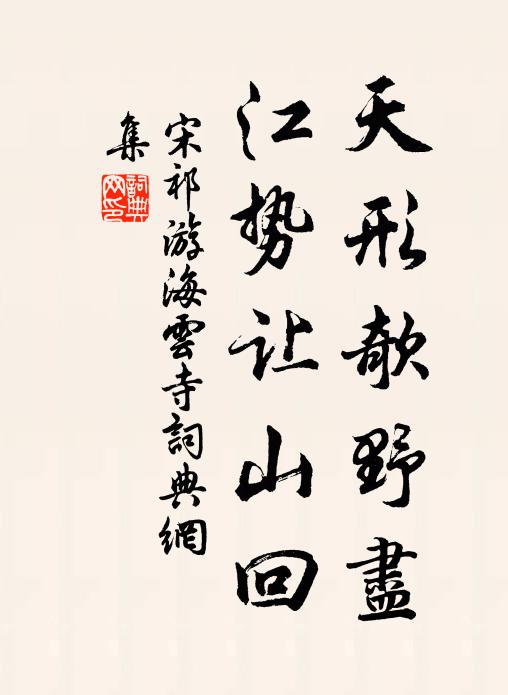 天形欹野盡
江势让山回
宋祁游海雲寺詞典網
集
詞典
网印